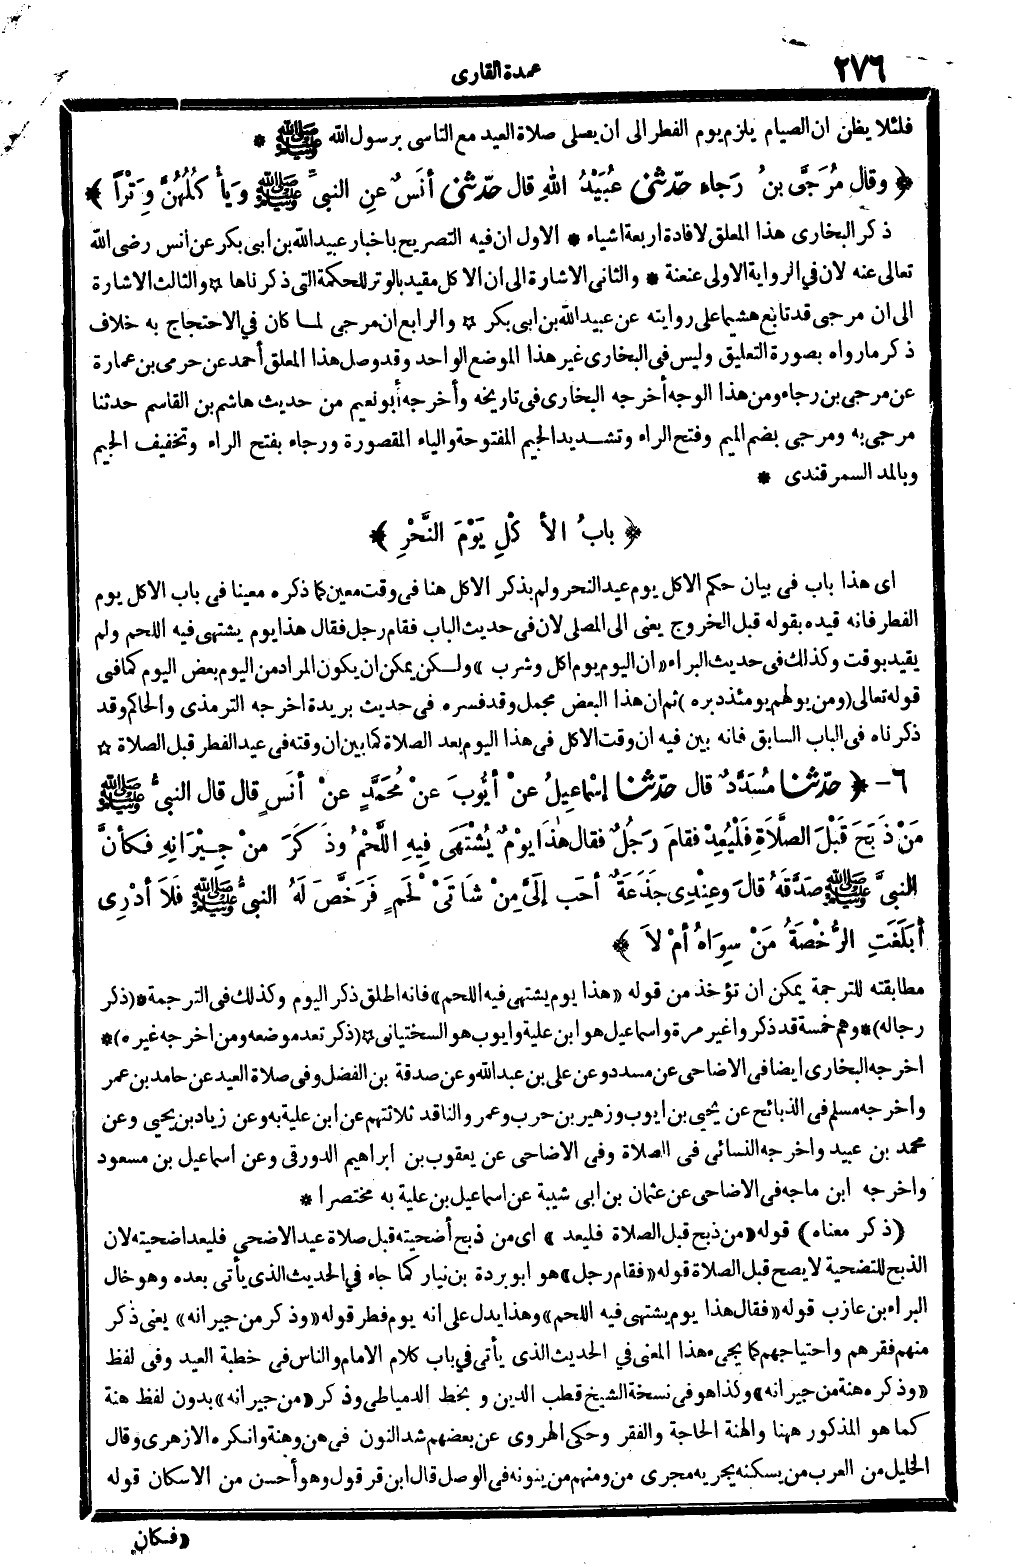 ٢٧٦
عمدة القارى
فلئلا يظن ان الصيام يلزم يوم الفطر الى ان يصلى صلاة العيد مع التاسى برسول الله ﷺ *
﴿ وقال مُرَجَّى بنُ رَجاء حدّثنى عُبَيْدُ اللهِ قال حدّثنى أنَسٌ عنِ النبىِّ ﷺ وَيأْ كُلُهُنَّ وِتَرْاً ﴾
ذكر البخارى هذا المعلق لافادة اربعة اشياء * الاول ان فيه التصريح باخبار عبيد الله بن ابى بكر عن انس رضى الله
تعالى عنه لان في الرواية الاولى عنعنة * والثانى الاشارة الى ان الاكل مقيد بالوتر للحكمة التى ذكرناها ☆ والثالث الاشارة
الى ان مرجى قد تابع هشيما على روايته عن عبيد الله بن ابى بكر ☆ والرابع ان مرجى لما كان في الاحتجاج به خلاف
ذكر مارواه بصورة التعليق وليس فى البخارى غير هذا الموضع الواحد وقد وصل هذا المعلق أحمد عن حرمى بن عمارة
عن مرجى بن رجاء ومن هذا الوجه أخرجه البخارى فى تاريخه وأخرجه أبو نعيم من حديث هاشم بن القاسم حدثنا
مرجى به ومرجى بضم الميم وفتح الراء وتشديد الجيم المفتوحة والياء المقصورة ورجاء بفتح الراء وتخفيف الجيم
وبالمد السمرقندى *
﴿ بابُ الأ كْلِ يَوْمَ النَّحْرِ ﴾
اى هذا باب فى بيان حكم الاكل يوم عيد النحر ولم يذكر الاكل هنا فى وقت معين كما ذكره معينا فى باب الاكل يوم
الفطر فانه قيده بقوله قبل الخروج يعنى الى المصلى لان فى حديث الباب فقام رجل فقال هذا يوم يشتهى فيه اللحم ولم
يقيد بوقت وكذلك فى حديث البراء «ان اليوم يوم اكل وشرب» ولكن يمكن ان يكون المراد من اليوم بعض اليوم كما فى
قوله تعالى (ومن يولهم يومئذ دبره) ثم ان هذا البعض مجمل وقد فسره فى حديث بريدة اخرجه الترمذى والحاكم وقد
ذكرناه فى الباب السابق فانه بين فيه ان وقت الاكل فى هذا اليوم بعد الصلاة كما بين ان وقته فى عيد الفطر قبل الصلاة ☆
٦ - ﴿ حدّثنا مُسَدَّدٌ قال حدّثنا إسْماعِيلُ عنْ أيُّوبَ عَنْ مُحَمَّدٍ عنْ أنَسٍ قال قال النبىُّ ﷺ
مَنْ ذَبَحَ قَبْلَ الصَّلاَةِ فَلْيُعِدْ فقامَ رَجُلٌ فقال هٰذَا يوْمٌ يُشْتَهَى فِيهِ اللَّحْمُ وذَ كَرَ منْ جِيْرَانِهِ فكأنَّ
النبىَّ ﷺ صَدَّقَهُ قالَ وعِنْدِى جَذَعَةٌ أحَب إلَىَّ مِنْ شَاتَىْ لَحْمٍ فَرَخَّصَ لَهُ النبىُّ ﷺ فَلاَ أدْرِى
أبَلَغَتِ الرُّخْصَةُ مَنْ سِوَاهُ أمْ لاَ ﴾
مطابقته للترجمة يمكن ان تؤخذ من قوله «هذا يوم يشتهى فيه اللحم» فانه اطلق ذكر اليوم وكذلك فى الترجمة * (ذكر
رجاله) * وهم خمسة قد ذكروا غير مرة واسماعيل هو ابن علية وايوب هو السختيانى ☆ (ذكر تعدد موضعه ومن اخرجه غيره) *
اخرجه البخارى ايضا فى الاضاحى عن مسدد وعن على بن عبد الله وعن صدقة بن الفضل وفى صلاة العيد عن حامد بن عمر
واخرجه مسلم فى الذبائح عن يحيى بن ايوب وزهير بن حرب وعمرو الناقد ثلاثتهم عن ابن علية به وعن زياد بن يحيى وعن
محمد بن عبيد واخرجه النسائى فى الصلاة وفى الاضاحى عن يعقوب بن ابراهيم الدورقى وعن اسماعيل بن مسعود
واخرجه ابن ماجه فى الاضاحى عن عثمان بن ابى شيبة عن اسماعيل بن علية به مختصرا *
(ذكر معناه) قوله «من ذبح قبل الصلاة فليعد» اى من ذبح أضحيته قبل صلاة عيد الاضحى فليعد اضحيته لان
الذبح للتضحية لا يصح قبل الصلاة قوله «فقام رجل» هو ابو بردة بن نيار كما جاء في الحديث الذى يأتى بعده وهو خال
البراء بن عازب قوله «فقال هذا يوم يشتهى فيه اللحم» وهذا يدل على انه يوم فطر قوله «وذكر من جيرانه» يعنى ذكر
منهم فقرهم واحتياجهم كما يجىء هذا المعنى في الحديث الذى يأتى في باب كلام الامام والناس فى خطبة العيد وفى لفظ
«وذكر هنة من جيرانه» وكذا هو فى نسخة الشيخ قطب الدين وبخط الدمياطى وذكر «من جيرانه» بدون لفظ هنة
كما هو المذكور ههنا والهنة الحاجة والفقر وحكى الهروى عن بعضهم شد النون فى هن وهنة وانكره الازهرى وقال
الخليل من العرب من يسكنه يجريه مجرى من ومنهم من ينونه فى الوصل قال ابن قرقول وهو أحسن من الاسكان قوله
«فكان